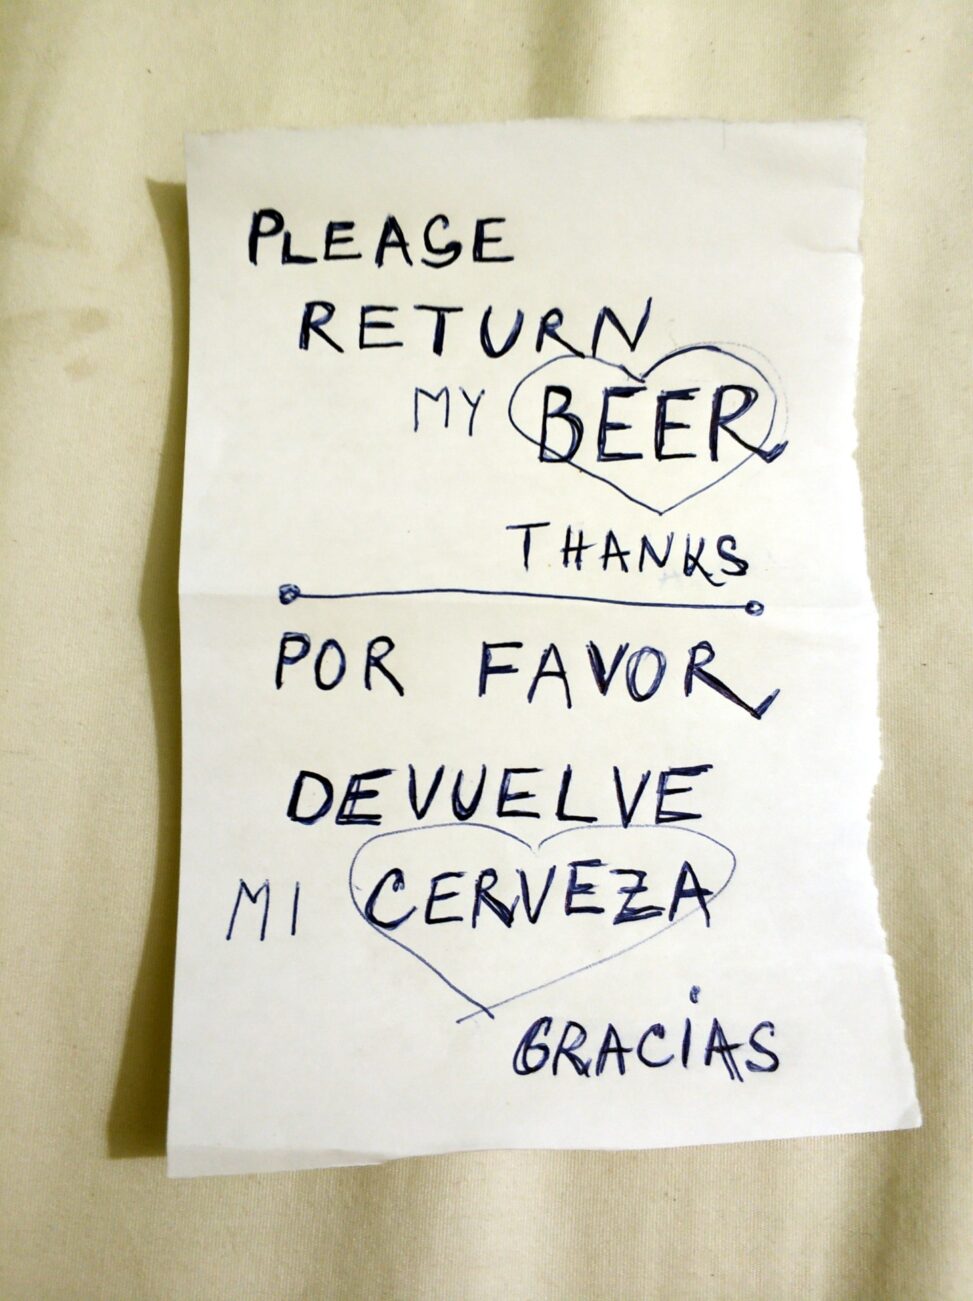 PLEASE
RETURN
MY BEER
THANKS
POR FAVOR
DEVUELVE
MI CERVEZA
GRACIAS